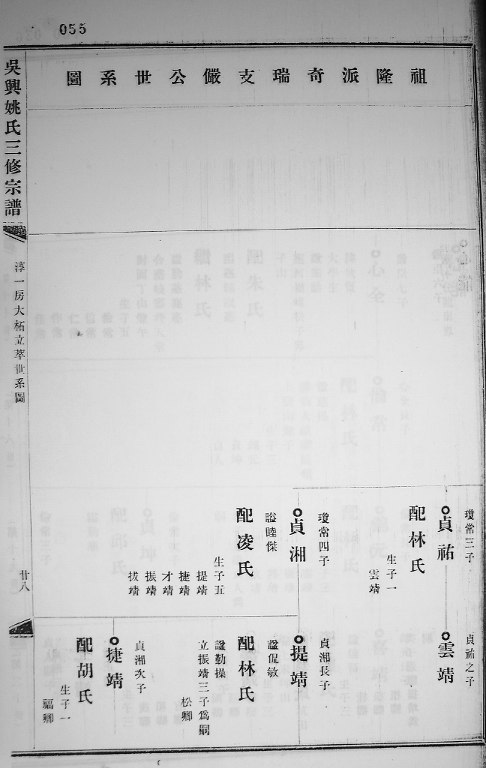 055
祖隆派奇瑞支儼公世系圖
吳興姚氏三修宗譜
淳一房大柘立萃世系圖
廿八
瓊常三子
貞祐
配林氏
生子一
雲靖
瓊常四子
貞湘
諡睦傑
配凌氏
生子五
提靖
捷靖
才靖
振靖
拔靖
貞祐之子
雲靖
貞湘長子
提靖
諡侃敏
配林氏
諡勤操
立振靖三子爲嗣
松鄉
貞湘次子
捷靖
配胡氏
生子一
福鄉